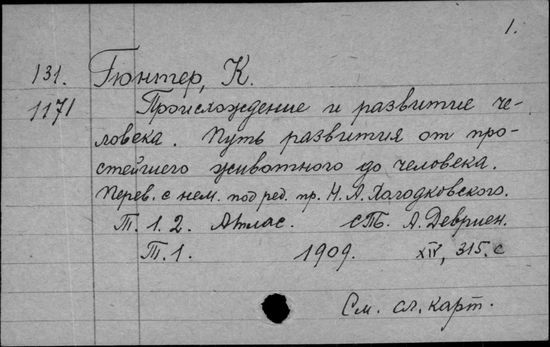 1.
131. Гюнтер, К.
1171 Происхождение и развитие че-
ловека. Путь развития от про-
стейшего животного до человека.
Перев. с нем. под ред. пр. Н. А. Холодковского.
Т. 1. 2. Атлас. СПб. А. Девриен.
Т. 1. 1909. XIV, 315. с
См. сл. карт.